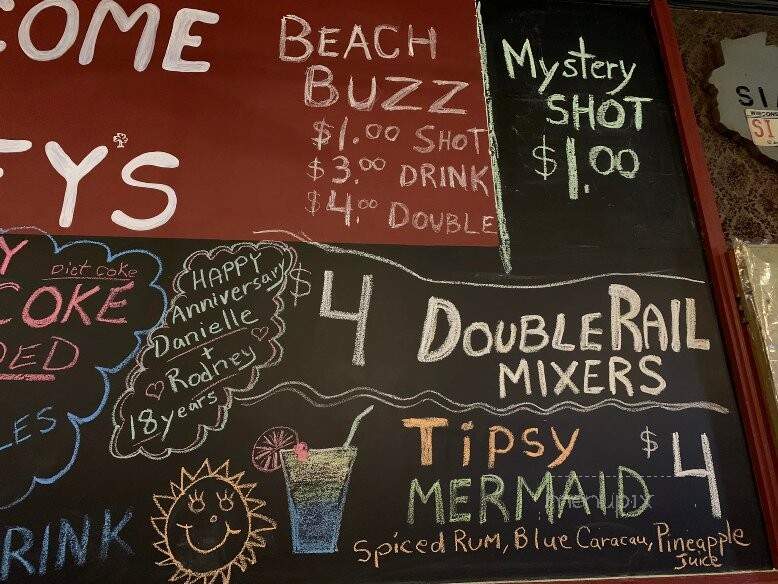 COME
EY'S
BEACH
BUZZ
$1.00 SHOT
$3.00 DRINK
$4.00 DOUBLE
Mystery
SHOT
$1.00
SI
WISCONS
SI
Y
Diet Coke
COKE
DED
LES
RINK
HAPPY
Anniversary
Danielle
+
Rodney
18 years
$4 DOUBLE RAIL
MIXERS
TiPSY
MERMAID
$4
Spiced Rum, Blue Caracau, Pineapple
Juice
menupix